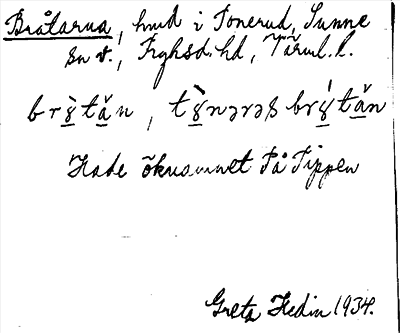 Bråtarna, hmd i Tonerud, Sunne
sn v., Fryksd. hd, Värml. l.
brɣ̀tăn, tɣ̀nərəs brɣ́tăn
Hade öknamnet På Tippen
Greta Hedin 1934.